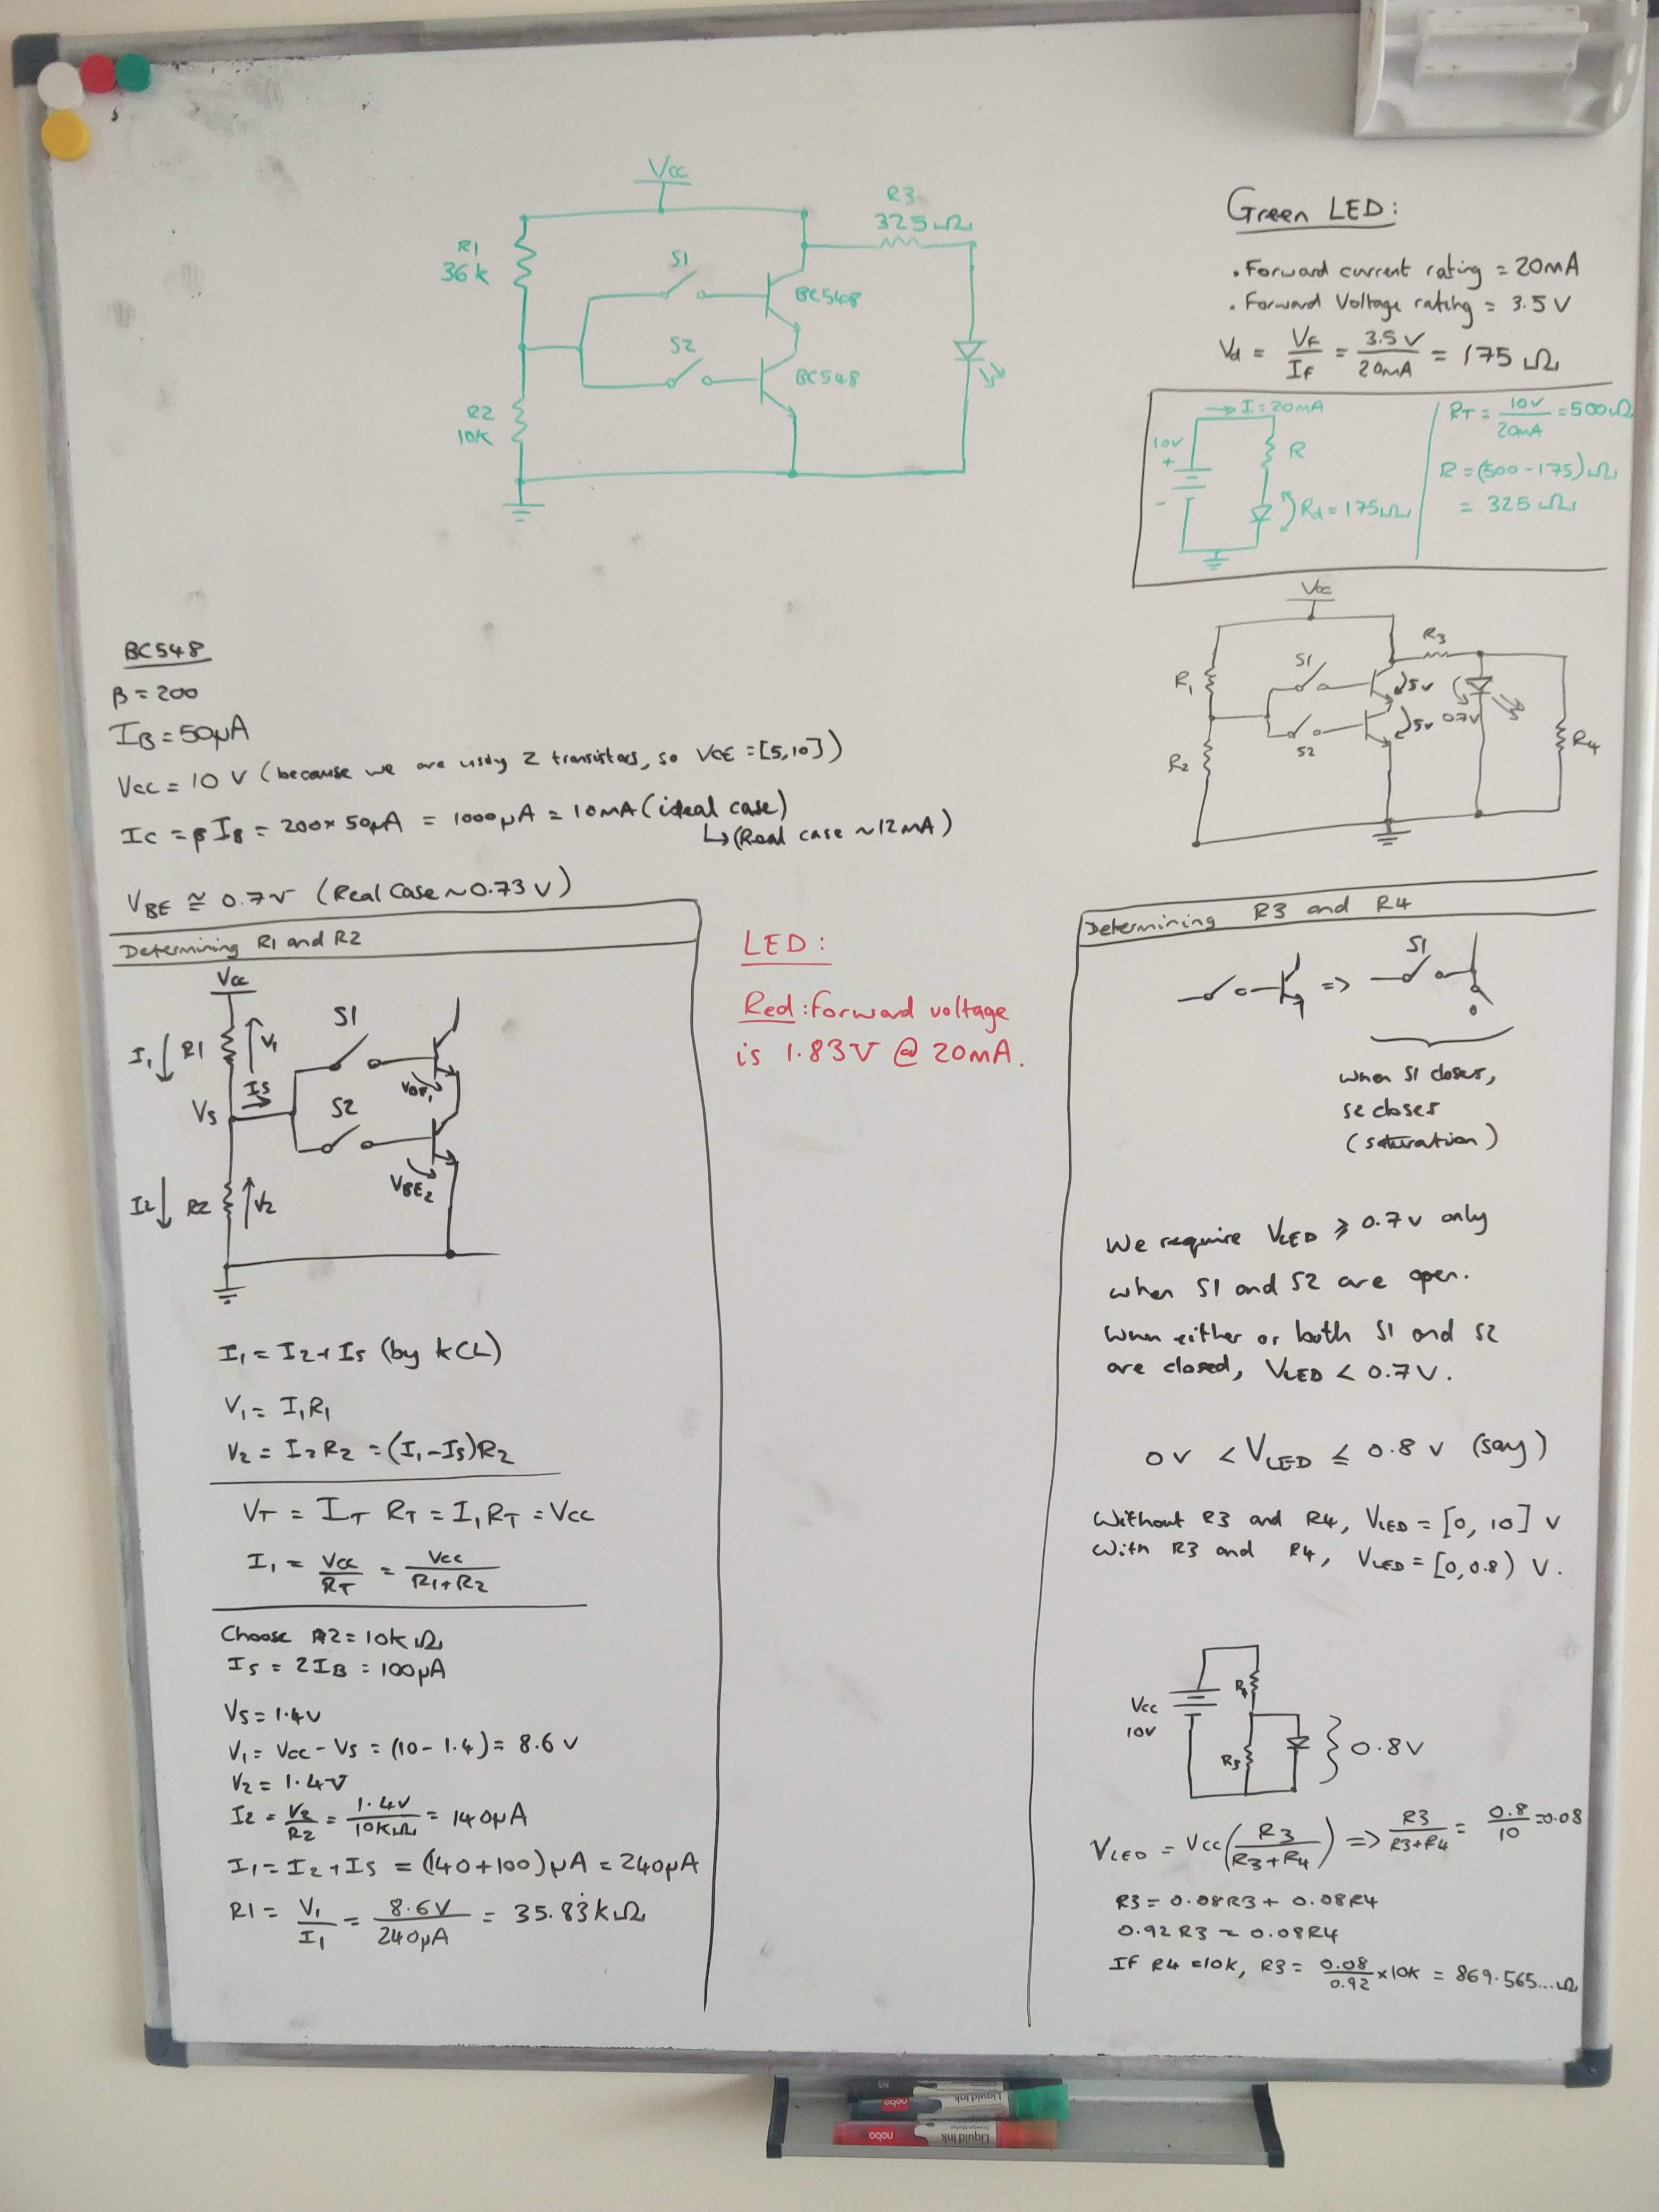 Vcc
R3
325Ω
R1
36k
S1
BC548
S2
BC548
R2
10K
Green LED:
• Forward current rating = 20mA
• Forward Voltage rating = 3.5 V
Vd = VF/IF = 3.5V/20mA = 175 Ω
I=20mA
10V
+
-
R
Rd=175Ω
RT = 10V/20mA = 500Ω
R = (500-175)Ω
= 325Ω
Vcc
R3
R1
S1
5v
0.7v
5v
S2
R2
R4
BC548
β = 200
IB = 50μA
Vcc = 10 V (because we are using 2 transistors, so VCE = [5,10])
IC = βIB = 200 × 50μA = 1000μA = 10mA (ideal case)
↳ (Real case ~12mA)
VBE ≅ 0.7v (Real Case ~0.73V)
Determining R1 and R2
Vcc
I1 ↓ R1 V1
S1
IS
VS
VBE1
S2
VBE2
I2 ↓ R2 V2
I1 = I2 + IS (by KCL)
V1 = I1R1
V2 = I2R2 = (I1-IS)R2
VT = IT RT = I1RT = Vcc
I1 = Vcc/RT = Vcc/R1+R2
Choose R2 = 10kΩ
IS = 2IB = 100μA
VS = 1.4v
V1 = Vcc - VS = (10 - 1.4) = 8.6 v
V2 = 1.4V
I2 = V2/R2 = 1.4V/10KΩ = 140μA
I1 = I2 + IS = (140+100)μA = 240μA
R1 = V1/I1 = 8.6V/240μA = 35.83̇kΩ
LED:
Red: forward voltage
is 1.83V @ 20mA.
Determining R3 and R4
=>
S1
when S1 closes,
SC closes
(saturation)
We require VLED ≥ 0.7v only
when S1 and S2 are open.
When either or both S1 and S2
are closed, VLED < 0.7V.
0v < VLED ≤ 0.8 v (say)
Without R3 and R4, VLED = [0, 10] V
With R3 and R4, VLED = [0,0.8) V.
Vcc
10V
R4
R3
0.8V
VLED = Vcc(R3/R3+R4) => R3/R3+R4 = 0.8/10 = 0.08
R3 = 0.08R3 + 0.08R4
0.92R3 = 0.08R4
If R4 = 10k, R3 = 0.08/0.92 × 10K = 869.565...Ω
Liquid Ink
nobo
Liquid Ink
nobo